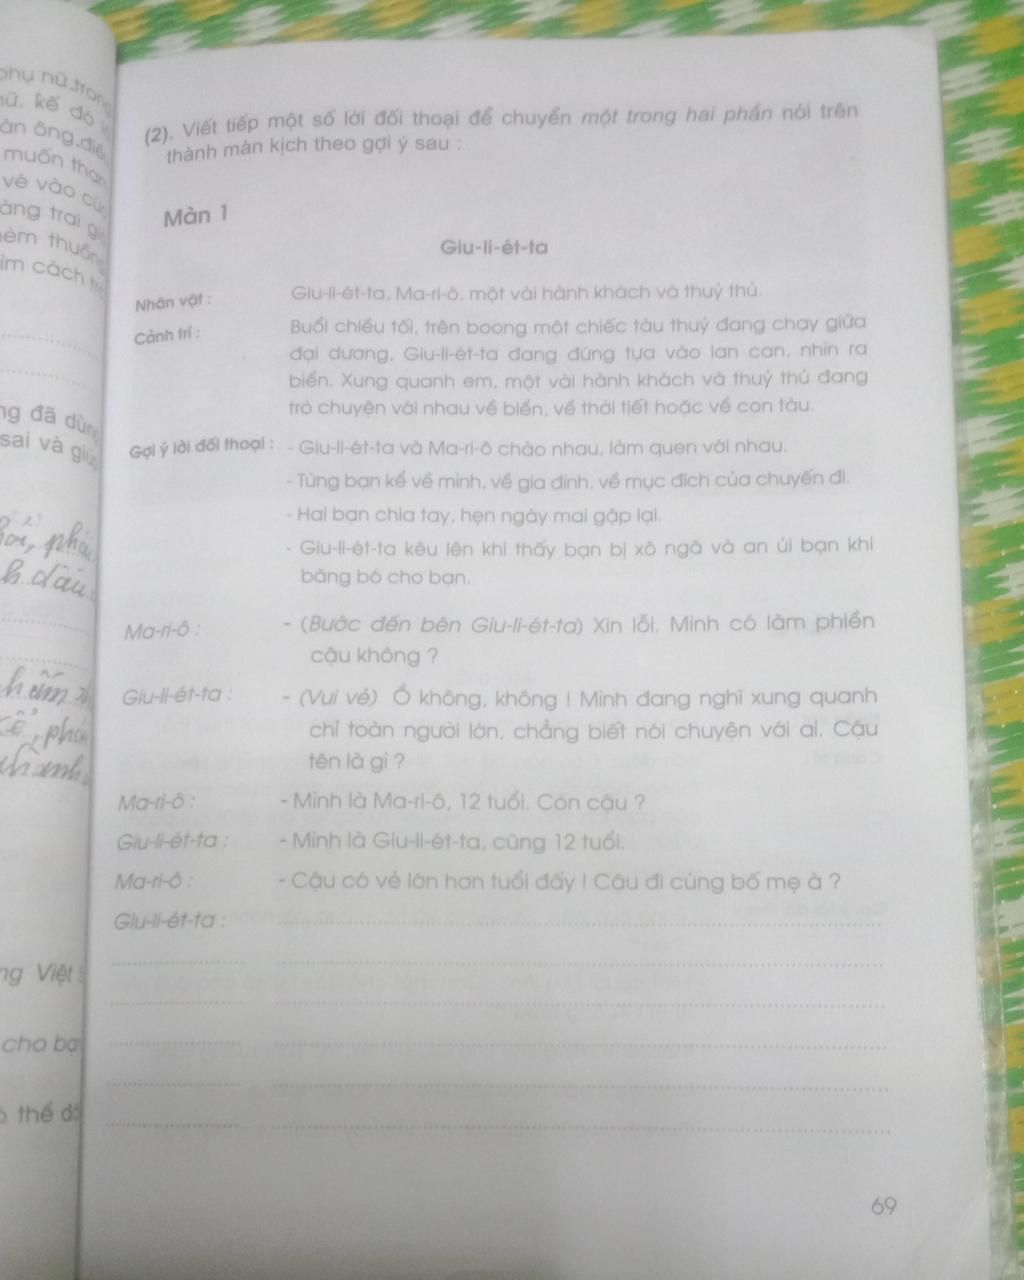 phụ nữ trong
nữ, kế đó
àn ông, điều
muốn tham
vé vào
àng trai
èm thuồng
ìm cách
(2). Viết tiếp một số lời đối thoại để chuyển một trong hai phần nói trên
thành màn kịch theo gợi ý sau :
Màn 1
Giu-li-ét-ta
Nhân vật : Giu-li-ét-ta, Ma-ri-ô, một vài hành khách và thuỷ thủ.
Cảnh trí : Buổi chiều tối, trên boong một chiếc tàu thuỷ đang chạy giữa
đại dương, Giu-li-ét-ta đang đứng tựa vào lan can, nhìn ra
biển. Xung quanh em, một vài hành khách và thuỷ thủ đang
trò chuyện với nhau về biển, về thời tiết hoặc về con tàu.
Gợi ý lời đối thoại : - Giu-li-ét-ta và Ma-ri-ô chào nhau, làm quen với nhau.
- Từng bạn kể về mình, về gia đình, về mục đích của chuyến đi.
- Hai bạn chia tay, hẹn ngày mai gặp lại.
- Giu-li-ét-ta kêu lên khi thấy bạn bị xô ngã và an ủi bạn khi
băng bó cho bạn.
Ma-ri-ô : - (Bước đến bên Giu-li-ét-ta) Xin lỗi. Mình có làm phiền
cậu không ?
Giu-li-ét-ta : - (Vui vẻ) Ồ không, không ! Mình đang nghĩ xung quanh
chỉ toàn người lớn, chẳng biết nói chuyện với ai. Cậu
tên là gì ?
Ma-ri-ô : - Mình là Ma-ri-ô, 12 tuổi. Còn cậu ?
Giu-li-ét-ta : - Mình là Giu-li-ét-ta, cũng 12 tuổi.
Ma-ri-ô : - Cậu có vẻ lớn hơn tuổi đấy ! Cậu đi cùng bố mẹ à ?
Giu-li-ét-ta :
ng đã dùng
sai và
ng Việt
cho bạ
thể
69